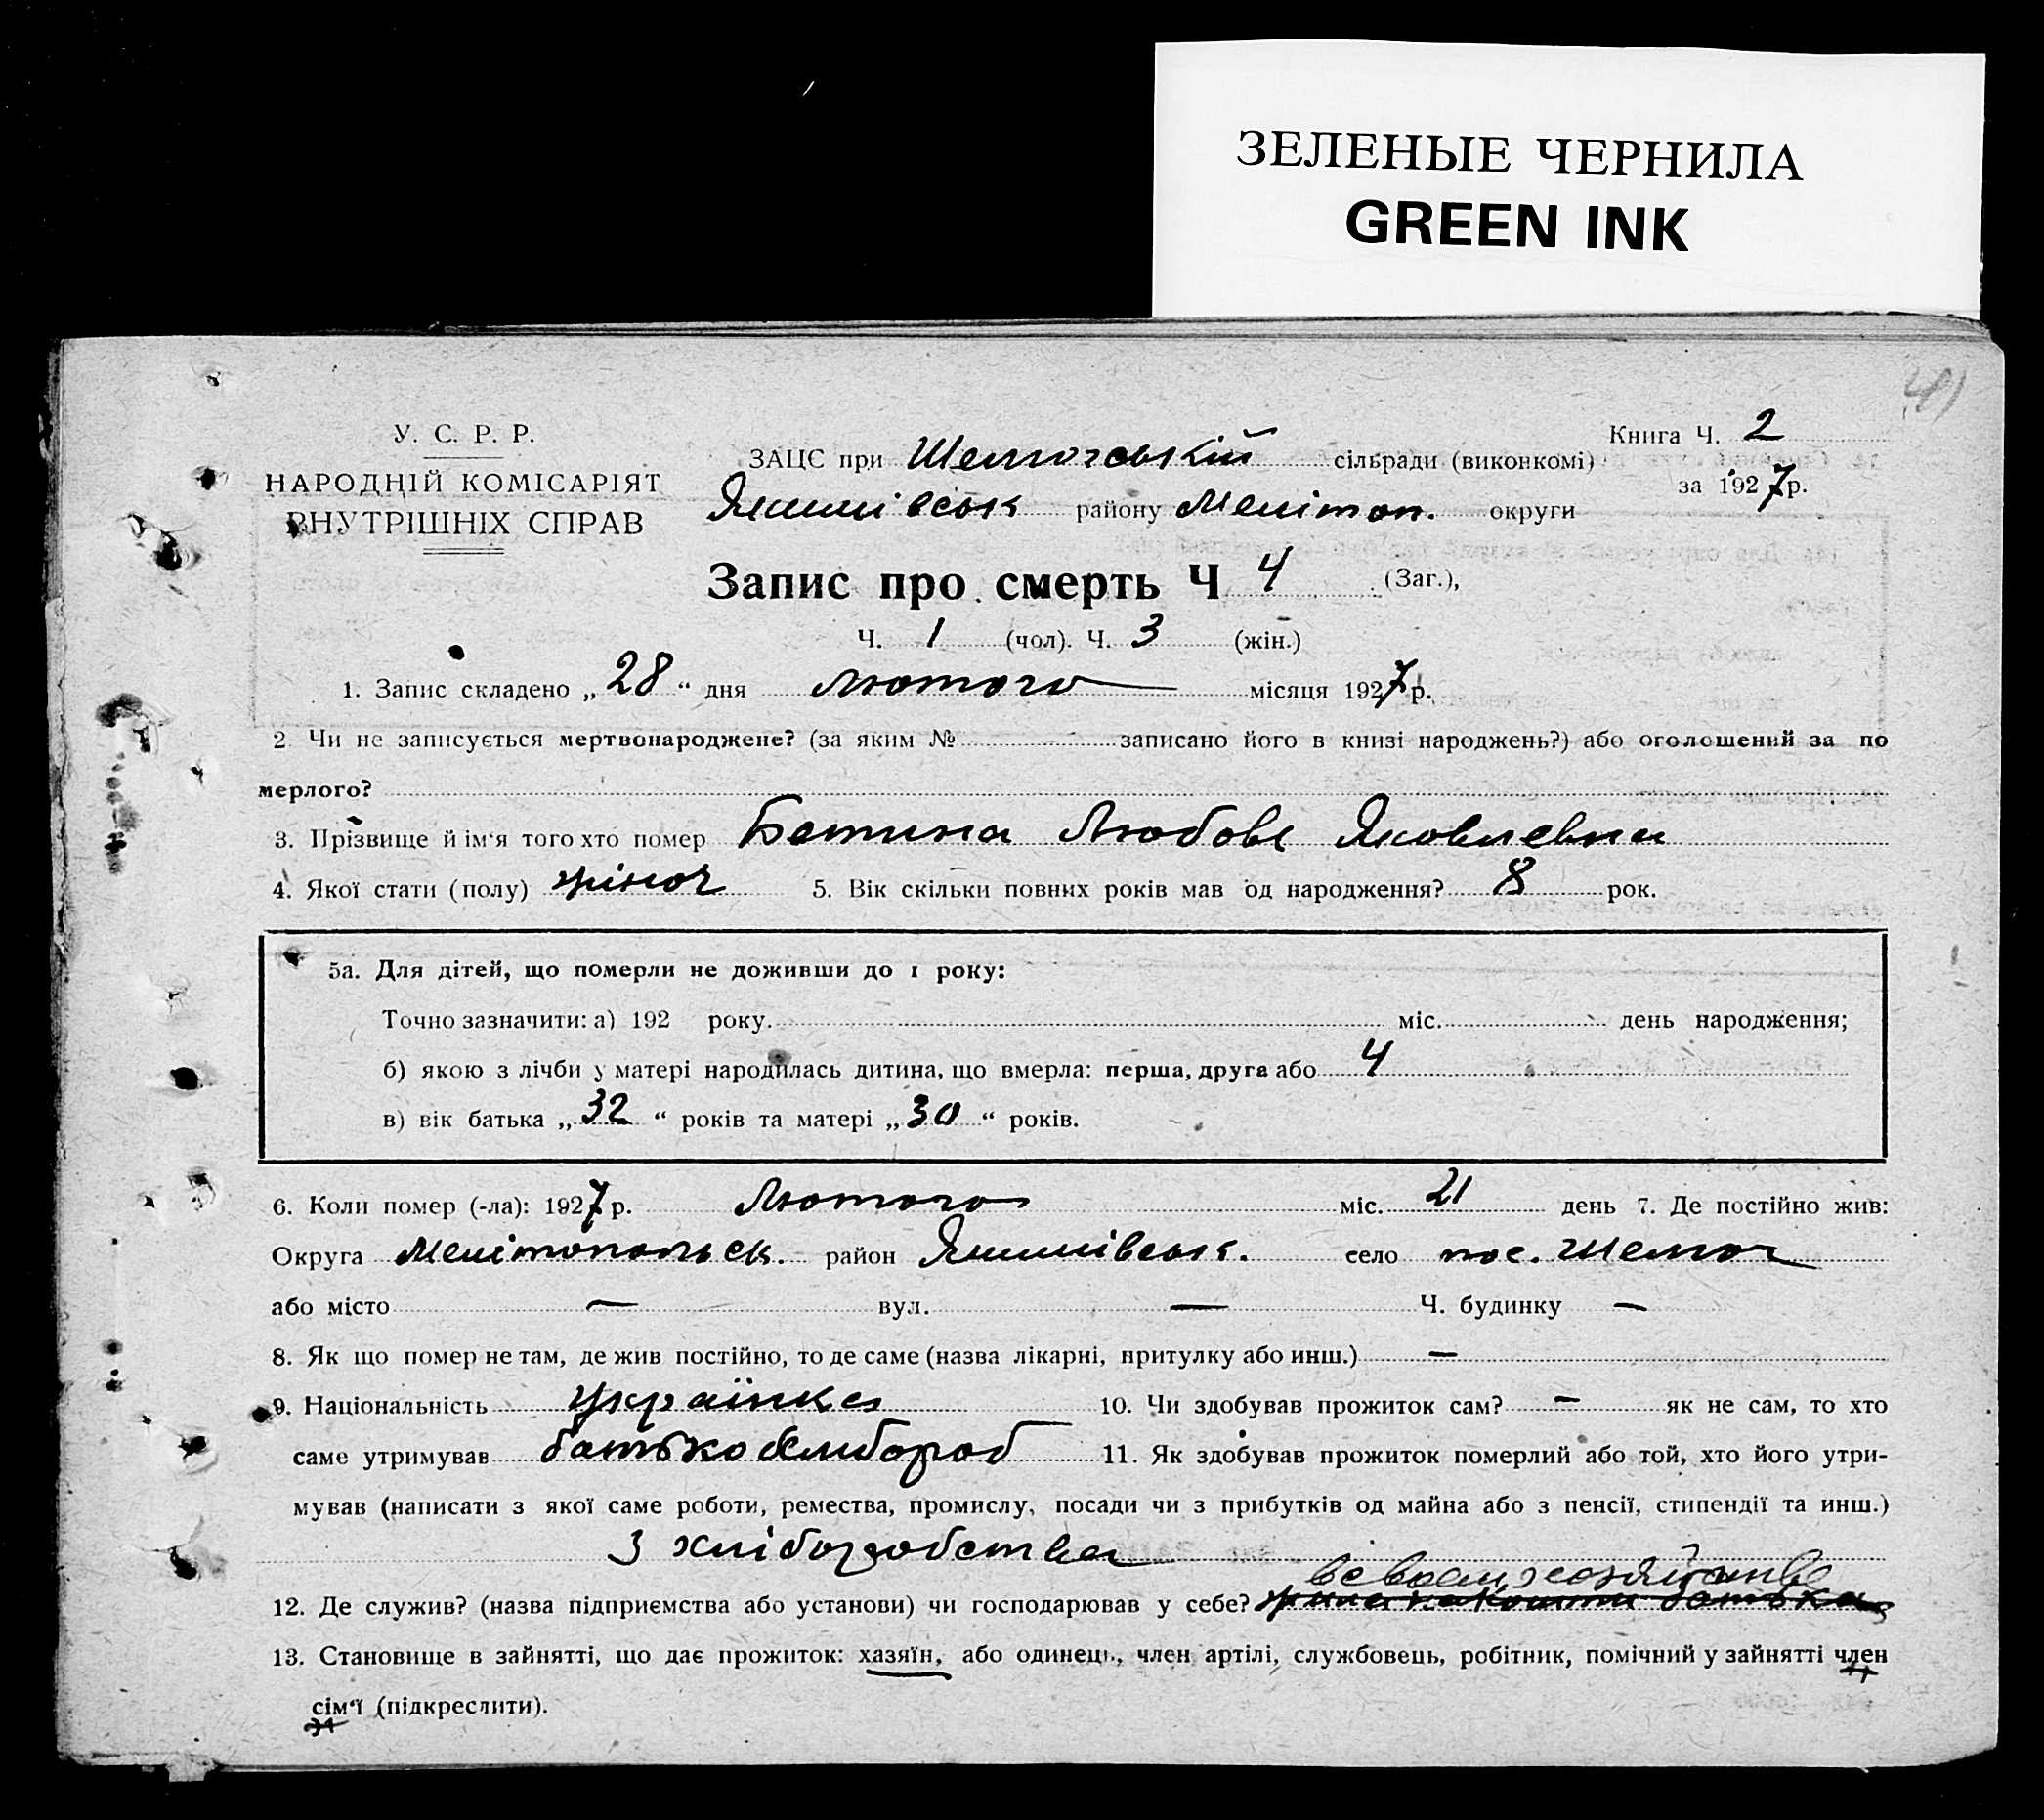 ЗЕЛЕНЫЕ ЧЕРНИЛА
GREEN INK
У. С. Р. Р.
НАРОДНІЙ КОМІСАРІЯТ
ВНУТРІШНІХ СПРАВ
ЗАЦС при сільради (виконкомі)
району Мелітоп. округи
Книга Ч. 2
за 1927 р.
Запис про смерть Ч 4 (Заг.),
Ч. 1 (чол). Ч. 3 (жін.)
1. Запис складено „28“ дня лютого місяця 1927 р.
2 Чи не записується мертвонароджене? (за яким № записано його в книзі народжень?) або оголошений за по
мерлого?
3. Прізвище й ім'я того хто помер Бетина Любовь Яковлевна
4. Якої стати (полу) жіноч 5. Вік скільки повних років мав од народження? 8 рок.
5а. Для дітей, що померли не доживши до 1 року:
Точно зазначити: а) 192 року. міс. день народження;
б) якою з лічби у матері народилась дитина, що вмерла: перша, друга або 4
в) вік батька „32“ років та матері „30“ років.
6. Коли помер (-ла): 1927 р. Лютого міс. 21 день 7. Де постійно жив:
Округа Мелітопольск. район село пос.
або місто — вул. — Ч. будинку —
8. Як що помер не там, де жив постійно, то де саме (назва лікарні, притулку або инш.) —
9. Національність українка 10. Чи здобував прожиток сам? — як не сам, то хто
саме утримував батько хлібороб 11. Як здобував прожиток померлий або той, хто його утри-
мував (написати з якої саме роботи, ремества, промислу, посади чи з прибутків од майна або з пенсії, стипендії та инш.)
З хліборобства
в своем хозяйстве
12. Де служив? (назва підприємства або установи) чи господарював у себе? жила на кошти батька
13. Становище в зайнятті, що дає прожиток: хазяїн, або одинець, член артілі, службовець, робітник, помічний у зайнятті член
сім'ї (підкреслити).